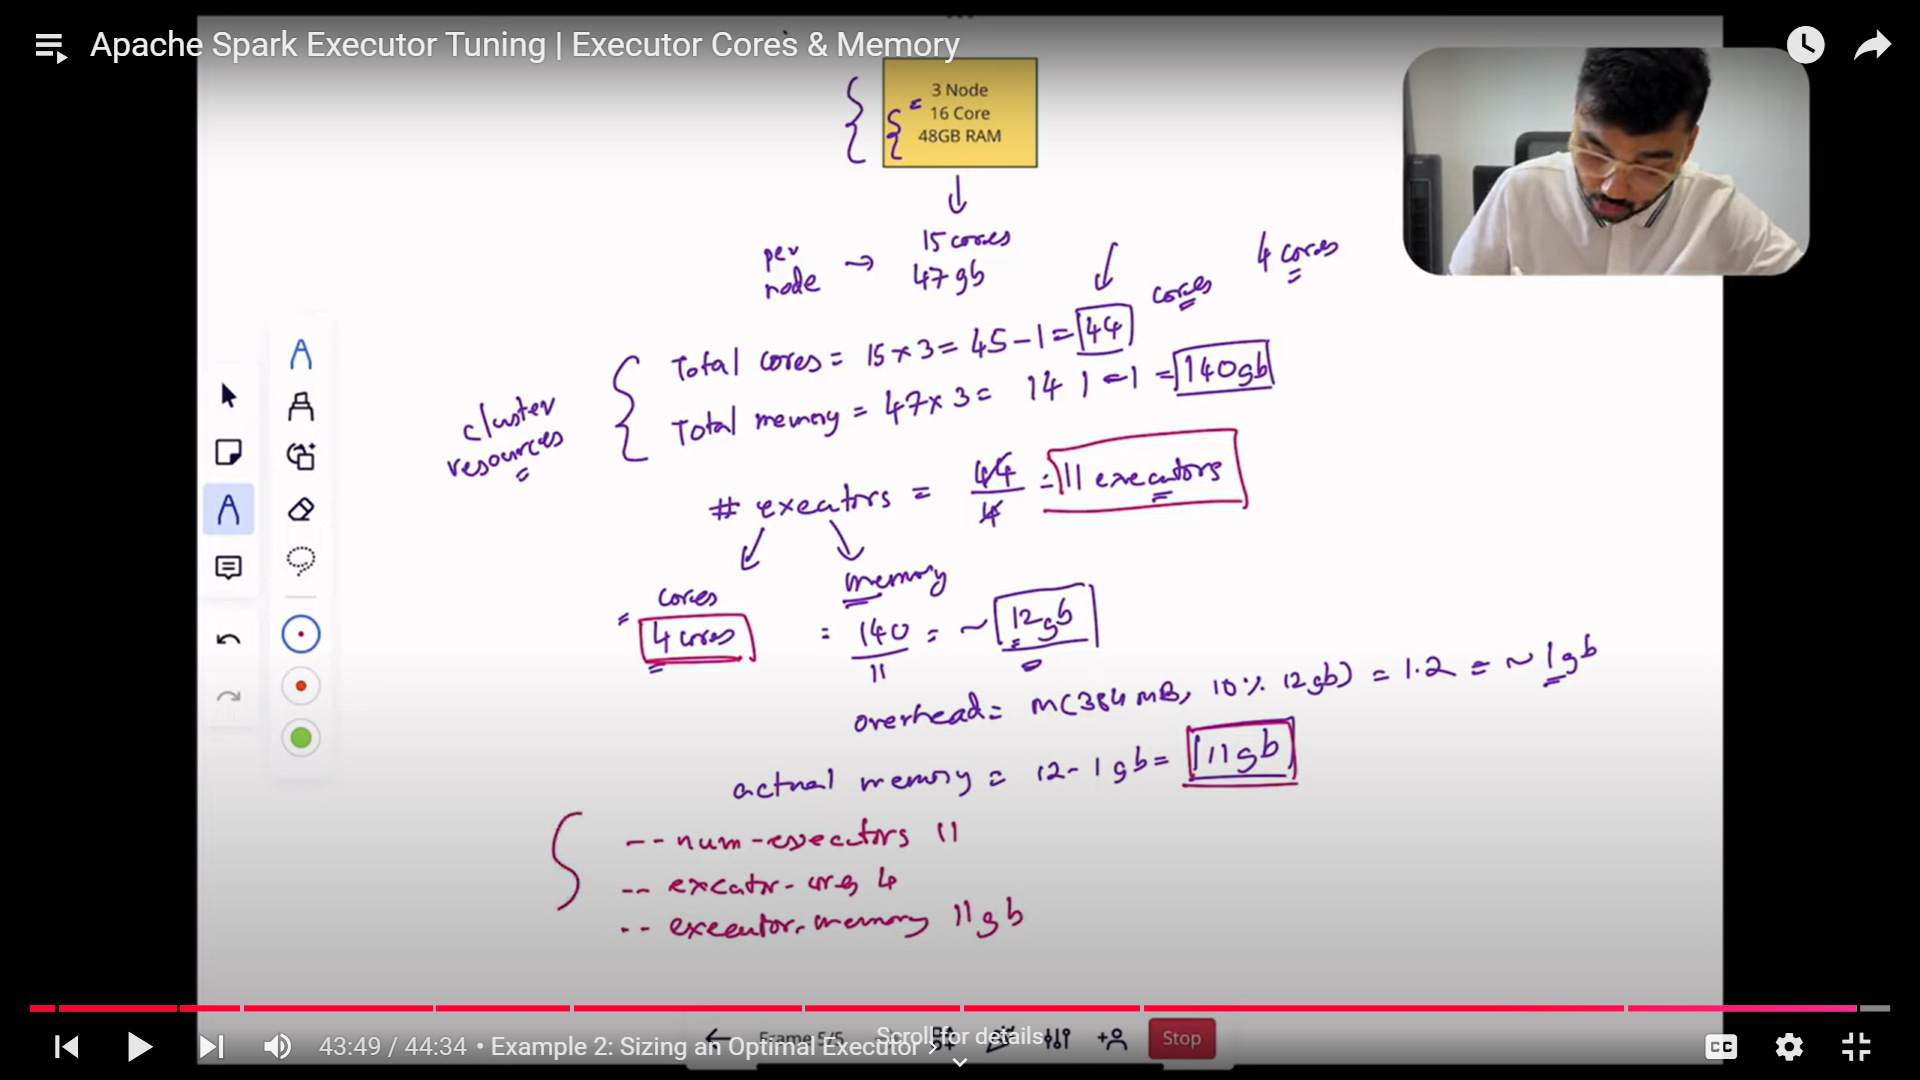 Apache Spark Executor Tuning | Executor Cores & Memory
3 Node
16 Core
48GB RAM
per node → 15 cores
47 gb
4 cores
cores
Total cores = 15 x 3 = 45 - 1 = 44
Total memory = 47 x 3 = 141 - 1 = 140gb
cluster
resources
# executors = 44/4 = 11 executors
cores
4 cores
memory
= 140/11 = ~ 12gb
overhead = M(384 MB, 10% 12gb) = 1.2 = ~ 1gb
actual memory = 12 - 1 gb = 11gb
-- num-executors 11
-- executor-cores 4
-- executor-memory 11gb
43:49 / 44:34 • Example 2: Sizing an Optimal Executor >
Frame 5/5
Scroll for details
Stop
CC